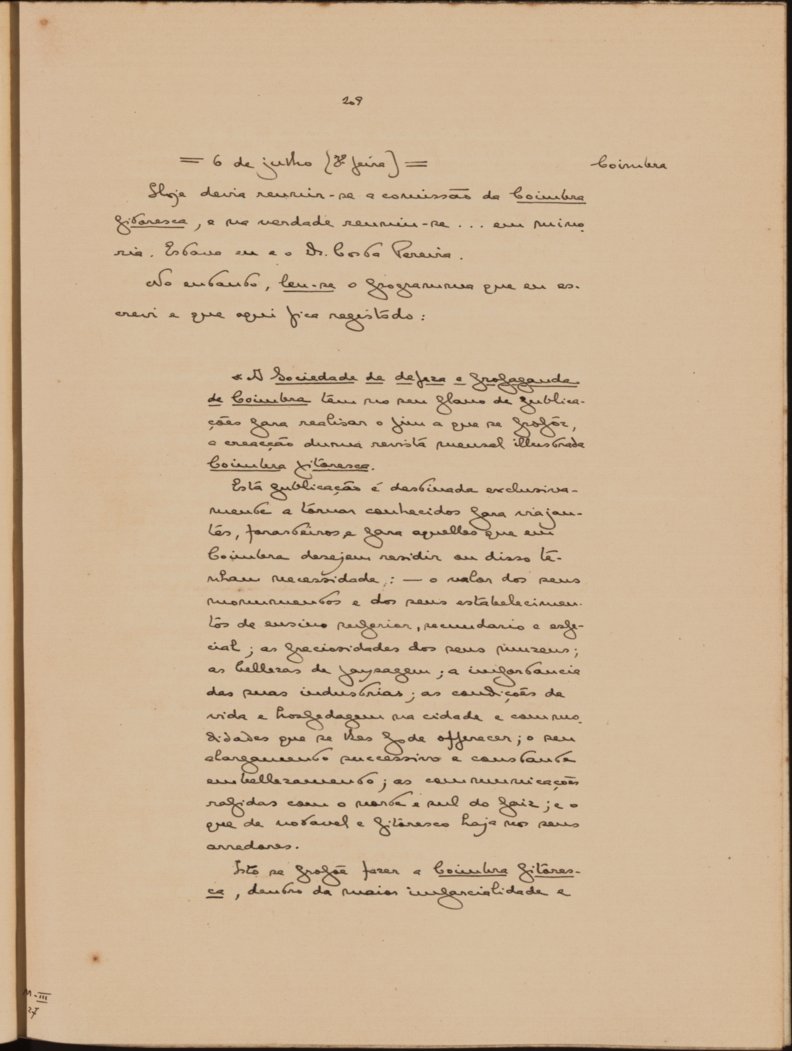 209
= 6 de julho (3ª feira) =
Coimbra
Hoje devia reunir-se a comissão da Coimbra
pitoresca, e na verdade reuniu-se ... em mino-
ria. Estava eu e o Dr. Costa Pereira.
No entanto, leu-se o programma que eu es-
crevi e que aqui fica registado:
« A Sociedade de defeza e propaganda
de Coimbra têm no seu plano de publica-
ções para realisar o fim a que se propôz,
a creacção duma revista mensal illustrada
Coimbra pitoresca.
Esta publicação é destinada exclusiva-
mente a tornar conhecidos para viajan-
tes, forasteiros e para aquelles que em
Coimbra desejem residir ou disso te-
nham necessidade,: — o valor dos seus
monumentos e dos seus estabelecimen-
tos de ensino superior, secundario e espe-
cial; as preciosidades dos seus museus;
as bellezas de paysagem; a importancia
das suas industrias; as condições de
vida e hospedagem na cidade e commo-
didades que se lhes póde offerecer; o seu
alargamento successivo e constante
embellezamento; as communicações
rapidas com o norte e sul do paiz; e o
que de notavel e pitoresco haja nos seus
arredores.
Isto se propõe fazer a Coimbra pitores-
ca, dentro da maior imparcialidade e
M-III
27